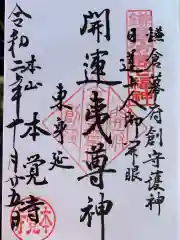 鎌倉幕府創守護神
日蓮上人御開眼
開運夷尊神
東身延
本山 本覚寺
令和二年十一月廿五日